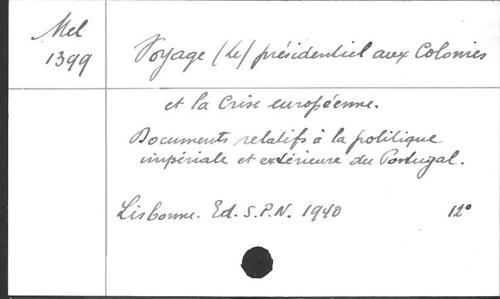 Mel
1399
Voyage (Le) présidentiel aux Colonies
et la Crise européenne.
Documents relatifs à la politique
impériale et extérieure du Portugal.
Lisbonne. Ed. S.P.N. 1940 12°